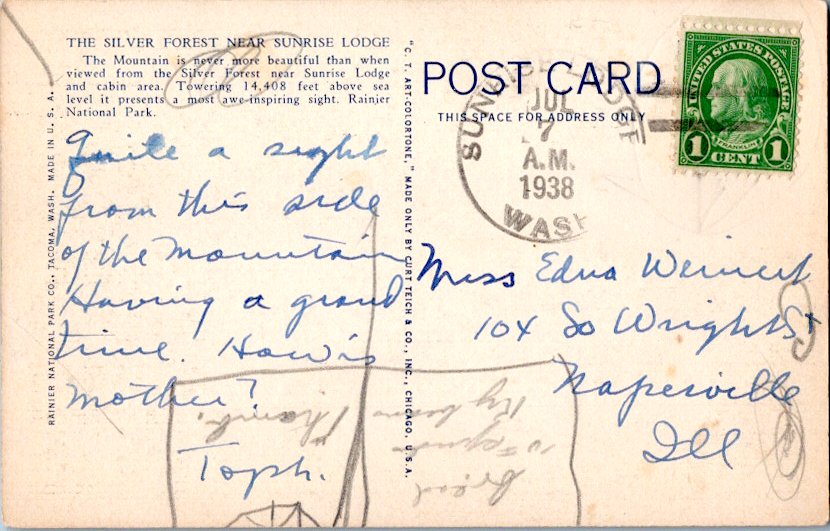 THE SILVER FOREST NEAR SUNRISE LODGE
The Mountain is never more beautiful than when
viewed from the Silver Forest near Sunrise Lodge
and cabin area. Towering 14,408 feet above sea
level it presents a most awe-inspiring sight. Rainier
National Park.
Quite a sight
from this side
of the Mountain
Having a grand
time. How is
Mother?
Toph.
RAINIER NATIONAL PARK CO., TACOMA, WASH. MADE IN U. S. A.
"C. T. ART-COLORTONE," MADE ONLY BY CURT TEICH & CO., INC., CHICAGO, U.S.A.
POST CARD
THIS SPACE FOR ADDRESS ONLY
SUNRISE LODGE
JUL
7
A.M.
1938
WASH
UNITED STATES POSTAGE
FRANKLIN
1 CENT 1
Miss Edna Weinert
104 So Wright St
Naperville
Ill
bread